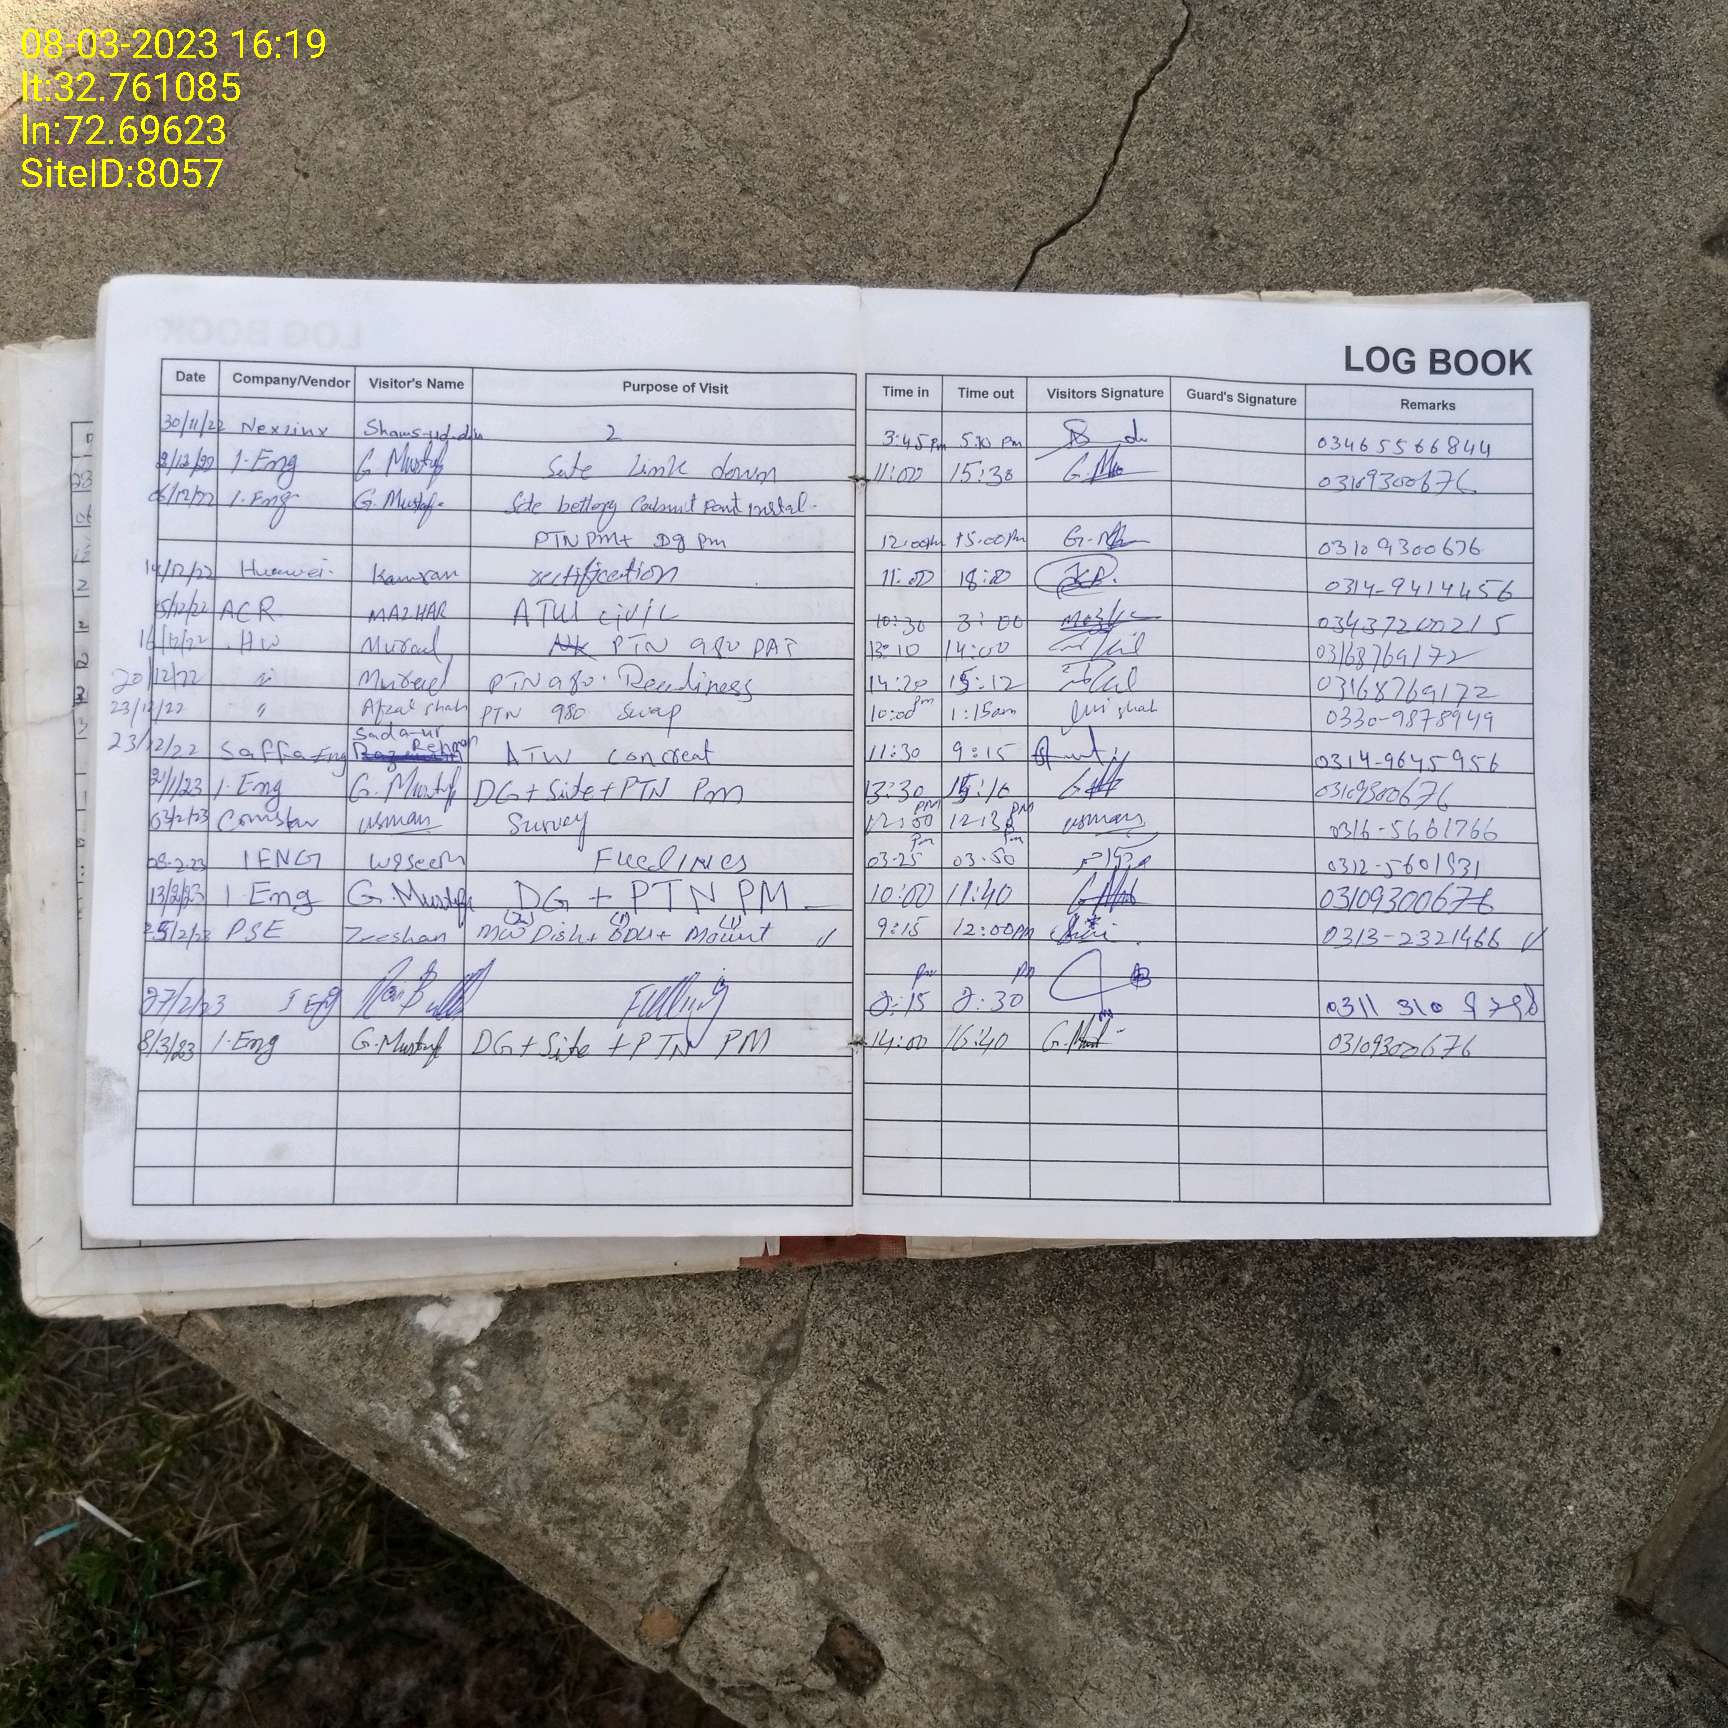 08-03-2023 16:19
lt:32.761085
ln:72.69623
SiteID:8057
LOG BOOK
Date Company/Vendor Visitor's Name Purpose of Visit Time in Time out Visitors Signature Guard's Signature Remarks
30/11/22 Nexlinx Shams-ud-din 2 3:45 pm 5:10 pm 03465566844
2/12/22 I.Eng G Mustafa Site Link down 11:00 15:30 G.M 03109300676
06/12/22 I.Eng G.Mustafa Site bettery Cabinet instal.
PTN PM+ Dg pm 12:00pm 15:00pm G.M 03109300676
14/12/22 Huawei. Kamran rectification 11:00 18:00 0314-9414456
15/12/22 ACR MAZHAR ATW civil 10:30 3:00 03437200215
16/12/22 HW Murad PTN 980 PAT 13:10 14:00 03168769172
20/12/22 " Murad PTN 980. Readiness 14:20 15:12 03168769172
23/12/22 " Afzal shah PTN 980 Swap 10:00pm 1:15am 0330-9878949
23/12/22 Saffa Eng Sada-ur Rehman ATW concreat 11:30 9:15 0314-9645956
2/1/23 I.Eng G.Mustafa DG+Site+PTN Pm 13:30 15:10 03109300676
03/2/23 Comstar usman Survey 12:00 PM 12:30 PM usman 0316-5661766
08-2-23 IENG waseem 03-25 pm 03:50 pm 0312-5601931
13/2/23 I.Eng G.Mustafa DG + PTN PM 10:00 11:40 03109300676
25/2/23 PSE Zeeshan MW Dish(2)+ ODU(1)+ Mount(1) ✓ 9:15 12:00PM 0313-2321466 ✓
27/2/23 I Eng Fulling 2:15 pm 2:30 pm 0311 310
8/3/23 I.Eng G.Mustafa DG+Site+PTN PM 14:00 16:40 G.Must 03109300676